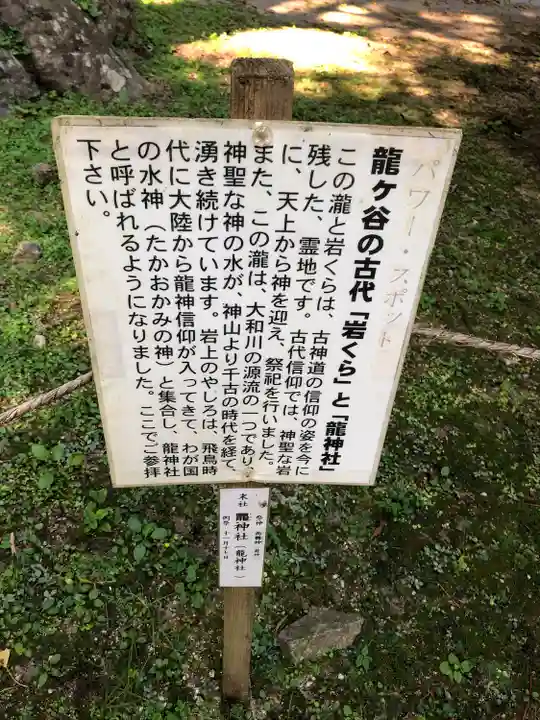 パワー・スポット
龍ヶ谷の古代「岩くら」と「龍神社」
この瀧と岩くらは、古神道の信仰の姿を今に
残した、霊地です。古代信仰では、神聖な岩
に、天上から神を迎え、祭祀を行いました。
また、この瀧は、大和川の源流の一つであり、
神聖な神の水が、神山より千古の時代を経て、
湧き続けています。岩上のやしろは、飛鳥時
代に大陸から龍神信仰が入ってきて、わが国
の水神（たかおかみの神）と集合し、龍神社
と呼ばれるようになりました。ここでご参拝
下さい。
末社
龗神社（龍神社）